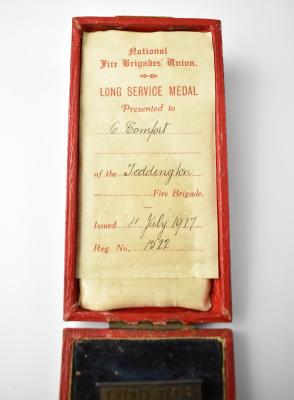 National
Fire Brigades' Union.
LONG SERVICE MEDAL
Presented to
C. Comfort
of the Teddington
Fire Brigade.
Issued 11 July 1917
Reg. No. 1522